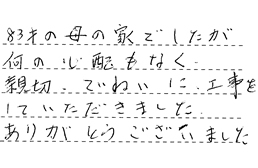 83才の母の家でしたが
何の心配もなく
親切、ていねいに工事を
していただきました。
ありがとうございました